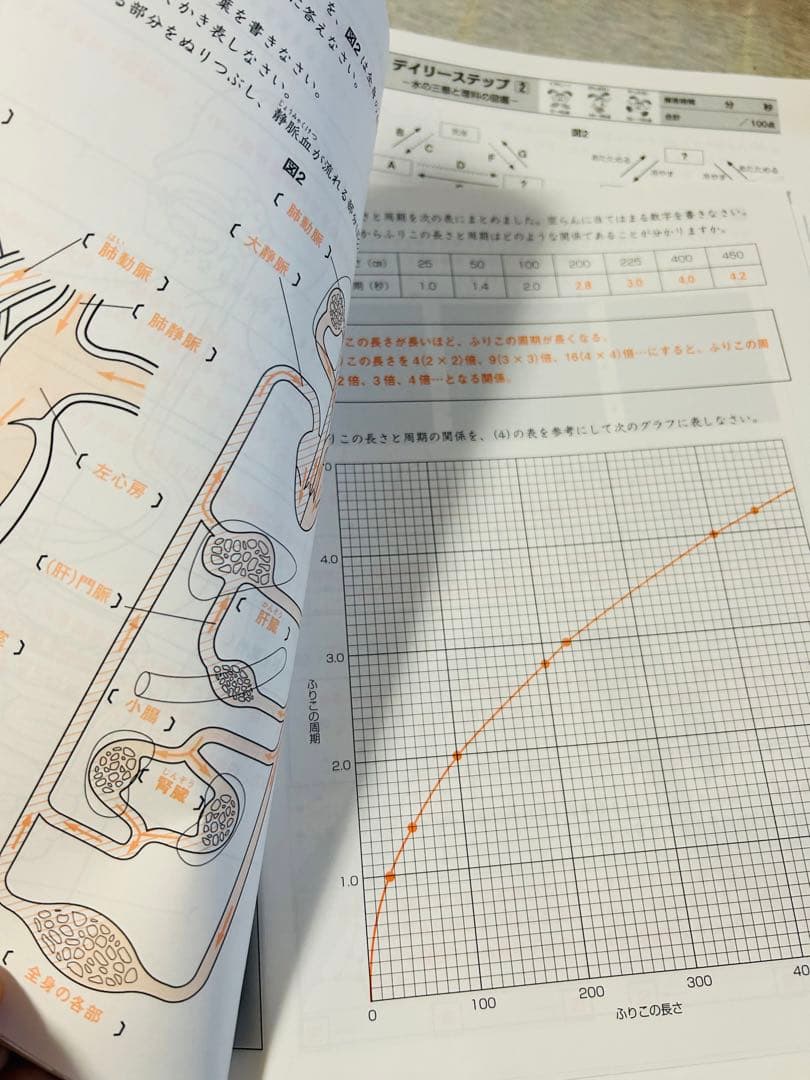 を、図2は
に答えなさい。
葉を書きなさい。
かき表しなさい。
る部分をぬりつぶし、静脈血が流れる部分
じょうみゃくけつ
図2
〔肺動脈
〔大静脈〕
はい
〔肺動脈〕
〔肺静脈〕
〔左心房〕
〔(肝)門脈〕
かんぞう
〔肝臓〕
〔小腸〕
じんぞう
〔腎臓〕
〔全身の各部〕
デイリーステップ 2
-水の三態と理科の図鑑-
解答時間 分 秒
合計 /100点
図2
C
G
A
D
F
?
あたためる
冷やす
?
冷やす
あたためる
さと周期を次の表にまとめました。空らんに当てはまる数字を書きなさい。
からふりこの長さと周期はどのような関係であることが分かりますか。
さ(cm) 25 50 100 200 225 400 450
期(秒) 1.0 1.4 2.0 2.8 3.0 4.0 4.2
この長さが長いほど、ふりこの周期が長くなる。
この長さを4(2×2)倍、9(3×3)倍、16(4×4)倍…にすると、ふりこの周
2倍、3倍、4倍…となる関係。
りこの長さと周期の関係を、(4)の表を参考にして次のグラフに表しなさい。
4.0
3.0
ふりこの周期
2.0
1.0
0 100 200 300 40
ふりこの長さ